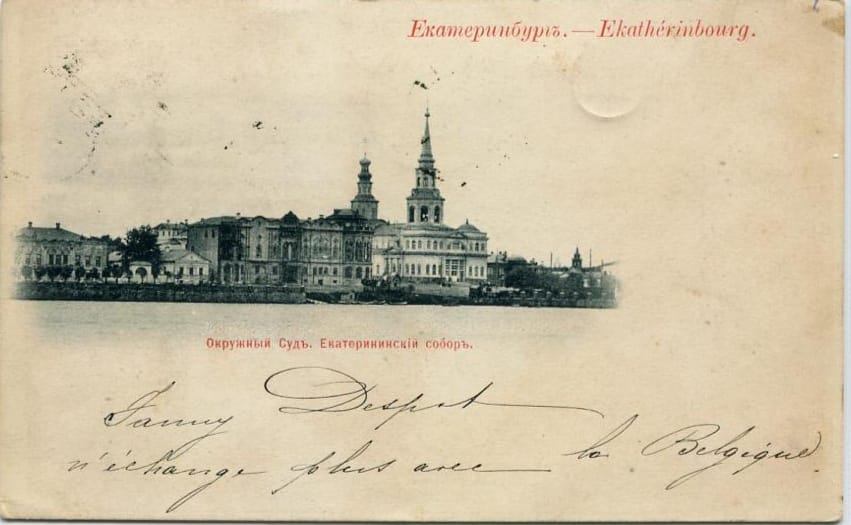 Екатеринбургъ. — Ekathérinbourg.
Окружный Судъ. Екатерининскій соборъ.
Fanny Despot
n'échange plus avec la Belgique